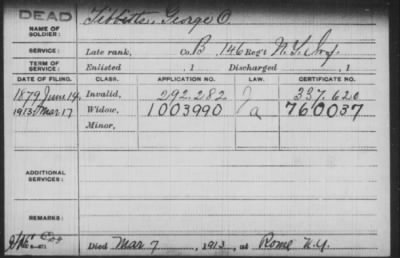 DEAD
NAME OF SOLDIER: Tibbitts, George O.
SERVICE: Late rank, Co. B, 146 Reg't N.Y. Inf.
TERM OF SERVICE: Enlisted , 1 Discharged , 1
DATE OF FILING. CLASS. APPLICATION NO. LAW. CERTIFICATE NO.
1879 June 14. Invalid, 292.282 337.620
1913 Mar 17 Widow, 1003990 a 760037
Minor,
ADDITIONAL SERVICES:
REMARKS:
Died Mar 7, 1913, at Rome N.Y.